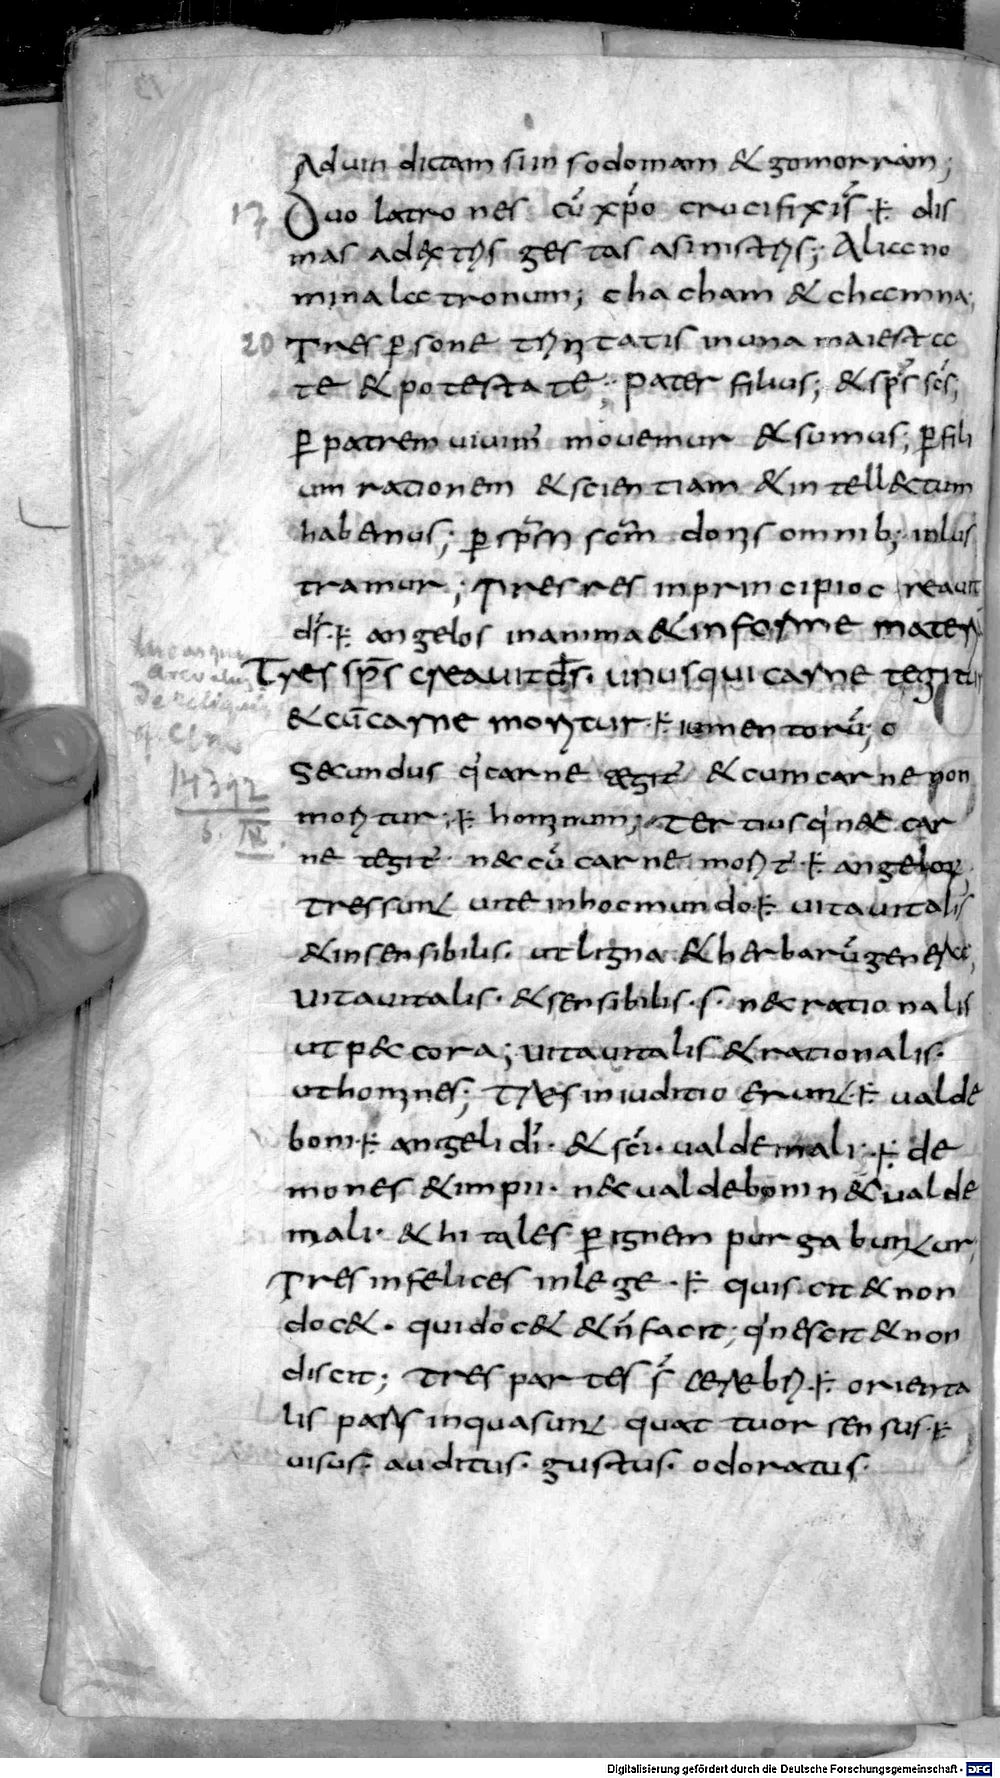 Aduin dictam s̄ in sodomam & gomorram;
17 Duo latrones cū xp̄o crucifixi s̄ .id est. dis
mas adextris gestas asinistris; Alia no
mina latronum; chacham & chamna;
20 Tres p̱sone trinitatis inuna maiesta
te & potestate; pater filius; & sp̄s sc̄s;
p̱ patrem uiuim̄ mouemur & sumus; p̱ fili
um rationem & scientiam & intellectum
habemus; p̱ sp̄m sc̄m donis omnib; inlus
tramur; Tres res inprincipio creauit
d̄s .id est. angelos inanima & informe materi
Tres sp̄s creauit d̄s. unusqui carne tegitur
& cū carne moritur .id est. iumentorū; o
Secundus q̇ carne tegit̄ & cum carne non
moritur; .id est. hominum; Tertius q̇ nec car
ne tegit̄ nec cū carne morit̄ .id est. angeloꝝ;
Tres sunt uite inhoc mundo .id est. uita uitalis
& insensibilis. ut ligna & herbarū genera;
uita uitalis. & sensibilis. s. nec rationalis
ut pecora; uita uitalis & rationalis.
ut homines; Tres iniuditio erunt .id est. ualde
boni .id est. angeli dī. & sc̄i. ualde mali .id est. de
mones & impii. nec ualde boni nec ualde
mali. & hi tales p̱ ignem purgabuntur;
Tres infelices inlege .id est. qui scit & non
doc&. qui doc& & n̄ facit; q̇ nescit & non
discit; Tres partes s̄ cerebri .id est. orienta
lis pars inqua sunt quattuor sensus .id est.
uisus. auditus. gustus. odoratus.
14392
Digitalisierung gefördert durch die Deutsche Forschungsgemeinschaft - DFG